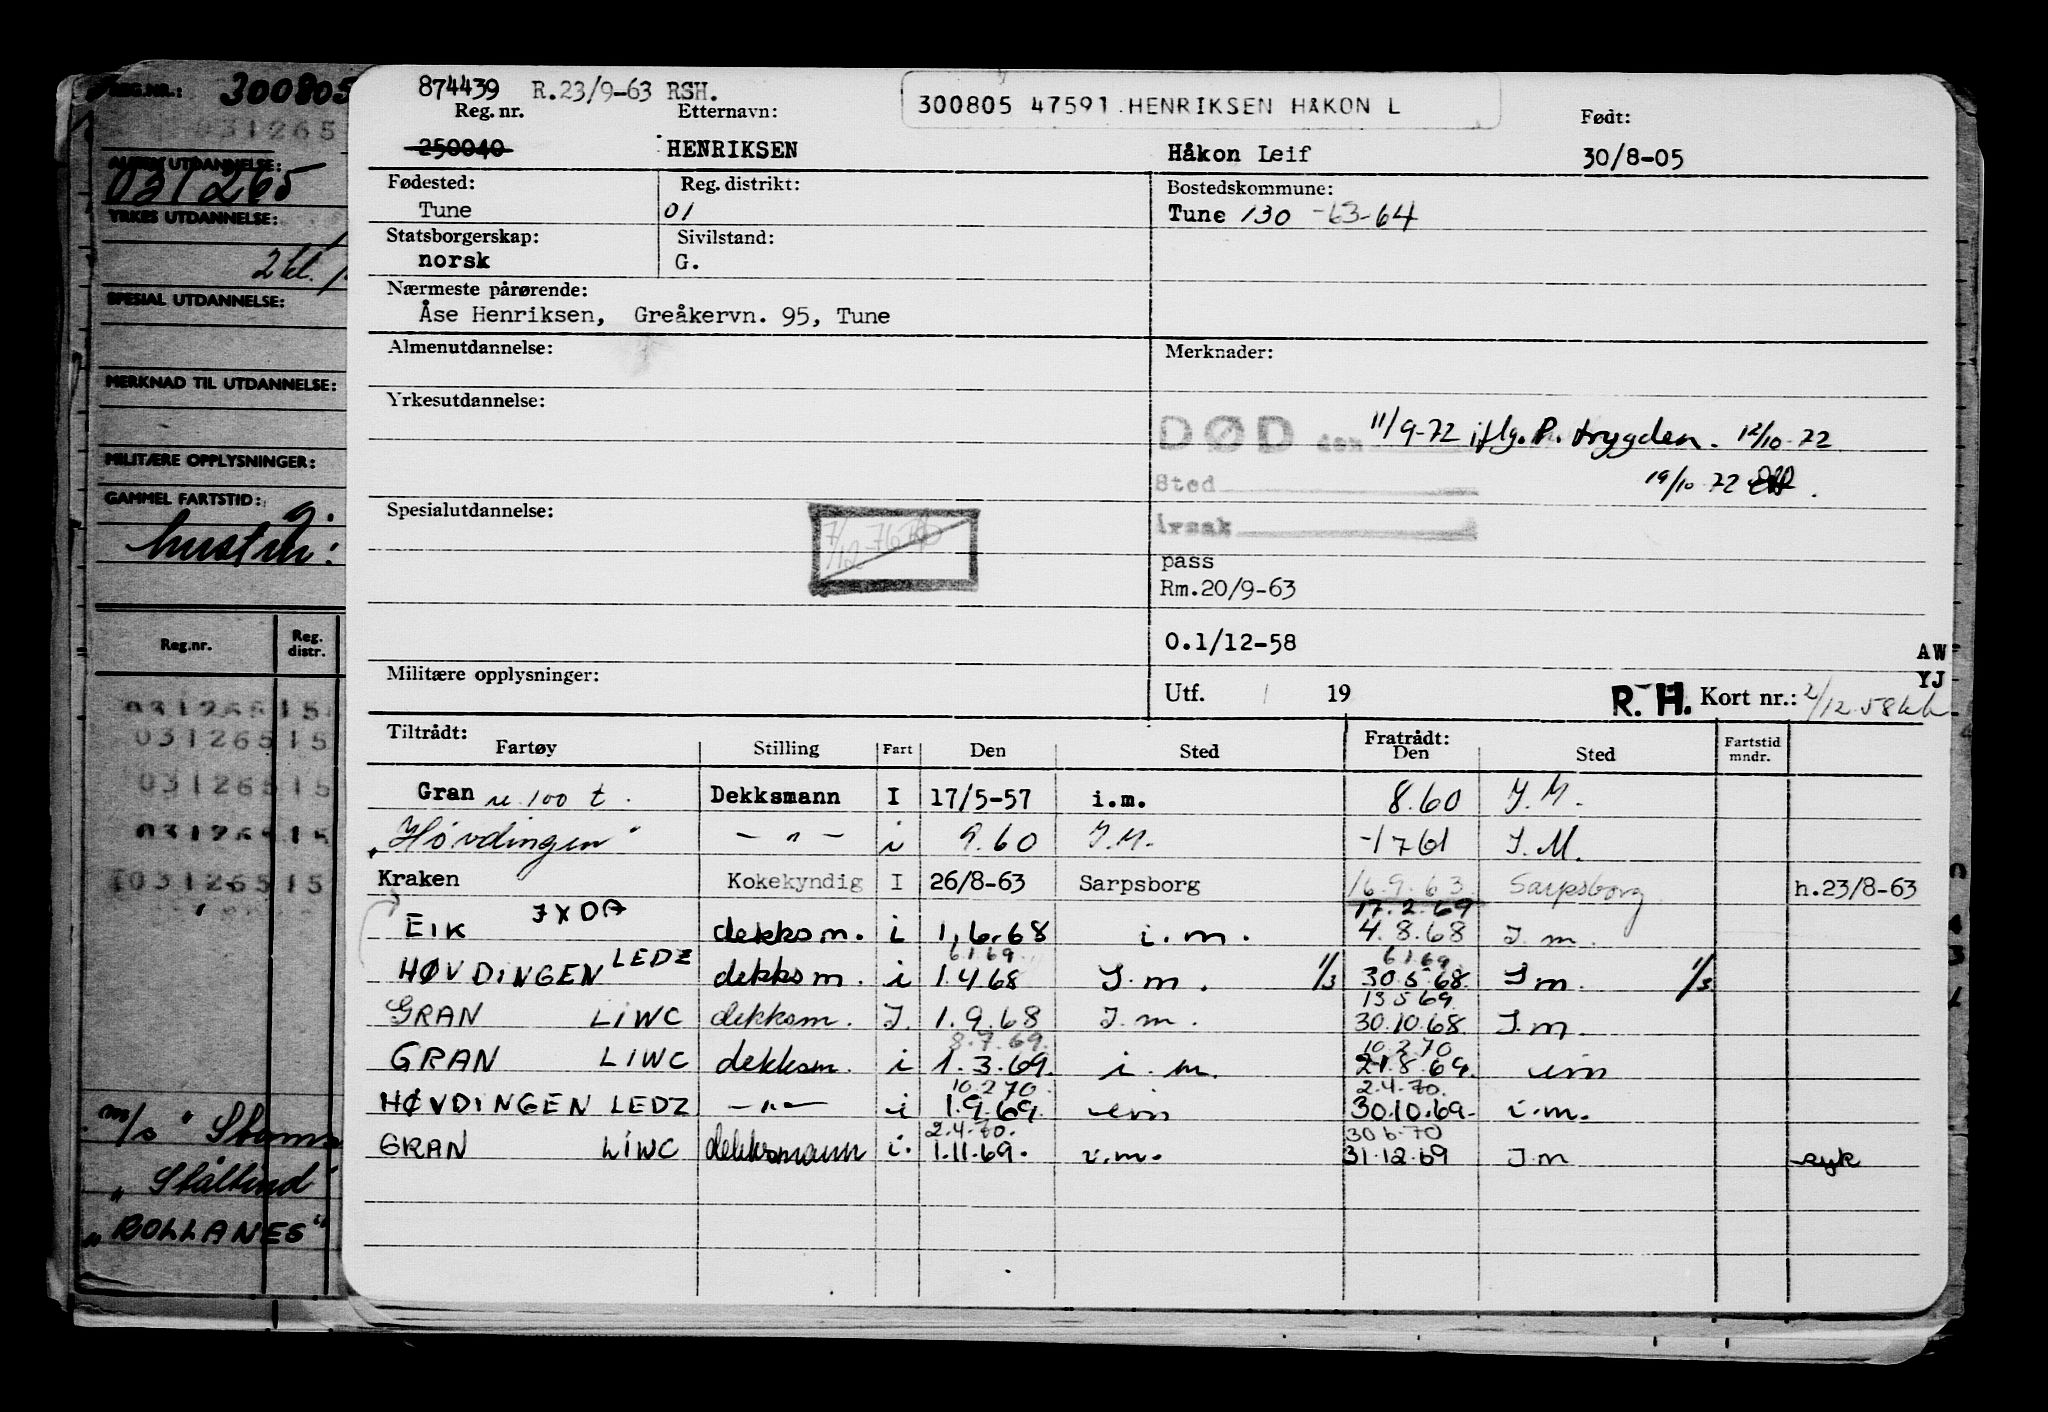 REG.NR.: 300805
031265
ALMEN UTDANNELSE:
031265
YRKES UTDANNELSE:
2 kl.
SPESIAL UTDANNELSE:
MERKNAD TIL UTDANNELSE:
MILITÆRE OPPLYSNINGER:
GAMMEL FARTSTID: g.
hustru:
Reg.nr. Reg. distr.
031265 15
031265 15
031265 15
031265 15
031265 15
m/s "
"
"BOLLANES"
874439 R.23/9-63 RSH.
300805 47591 HENRIKSEN HÅKON L
Reg. nr. Etternavn: Født:
250040 HENRIKSEN Håkon Leif 30/8-05
Fødested: Reg. distrikt: Bostedskommune:
Tune 01 Tune 130 -63-64
Statsborgerskap: Sivilstand:
norsk G.
Nærmeste pårørende:
Åse Henriksen, Greåkervn. 95, Tune
Almenutdannelse: Merknader:
Yrkesutdannelse:
DØD den 11/9-72 iflg. P. trygden. 12/10-72
Sted 19/10 72
Spesialutdannelse: årsak
7/12-76
pass
Rm.20/9-63
O.1/12-58
AW
YJ
Militære opplysninger: Utf. 19 R.H. Kort nr.: 2/12.58
Tiltrådt: Fratrådt:
Fartøy Stilling Fart Den Sted Den Sted Fartstid mndr.
Gran u. 100 t. Dekksmann I 17/5-57 i.m. 8.60 I.M.
"Høvdingen" — " — i 9.60 I.M. -1761 I.M.
Kraken Kokekyndig I 26/8-63 Sarpsborg 16.9.63 Sarpsborg h.23/8-63
17.2.69
EIK JXDA dekksm. i 1.6.68 i.m. 4.8.68 I.m.
6.1.69 6.1.69
HØVDINGEN LEDZ dekksm. i 1.4 68 I.m. 1/3 30.5.68. I m. 1/3
13.5 69
GRAN LIWC dekksm. I. 1.9.68 I.m. 30.10.68 I.m.
8.7.69. 10.2.70
GRAN LIWC dekksm. i 1.3.69. i.m. 21.8.69. im
10.2 70 2.4.70.
HØVDINGEN LEDZ — " — i 1.9.69. im 30.10.69. i.m.
2.4.70. 30.6.70
GRAN LIWC dekksmann i. 1.11.69. i.m. 31.12.69 I.m syk